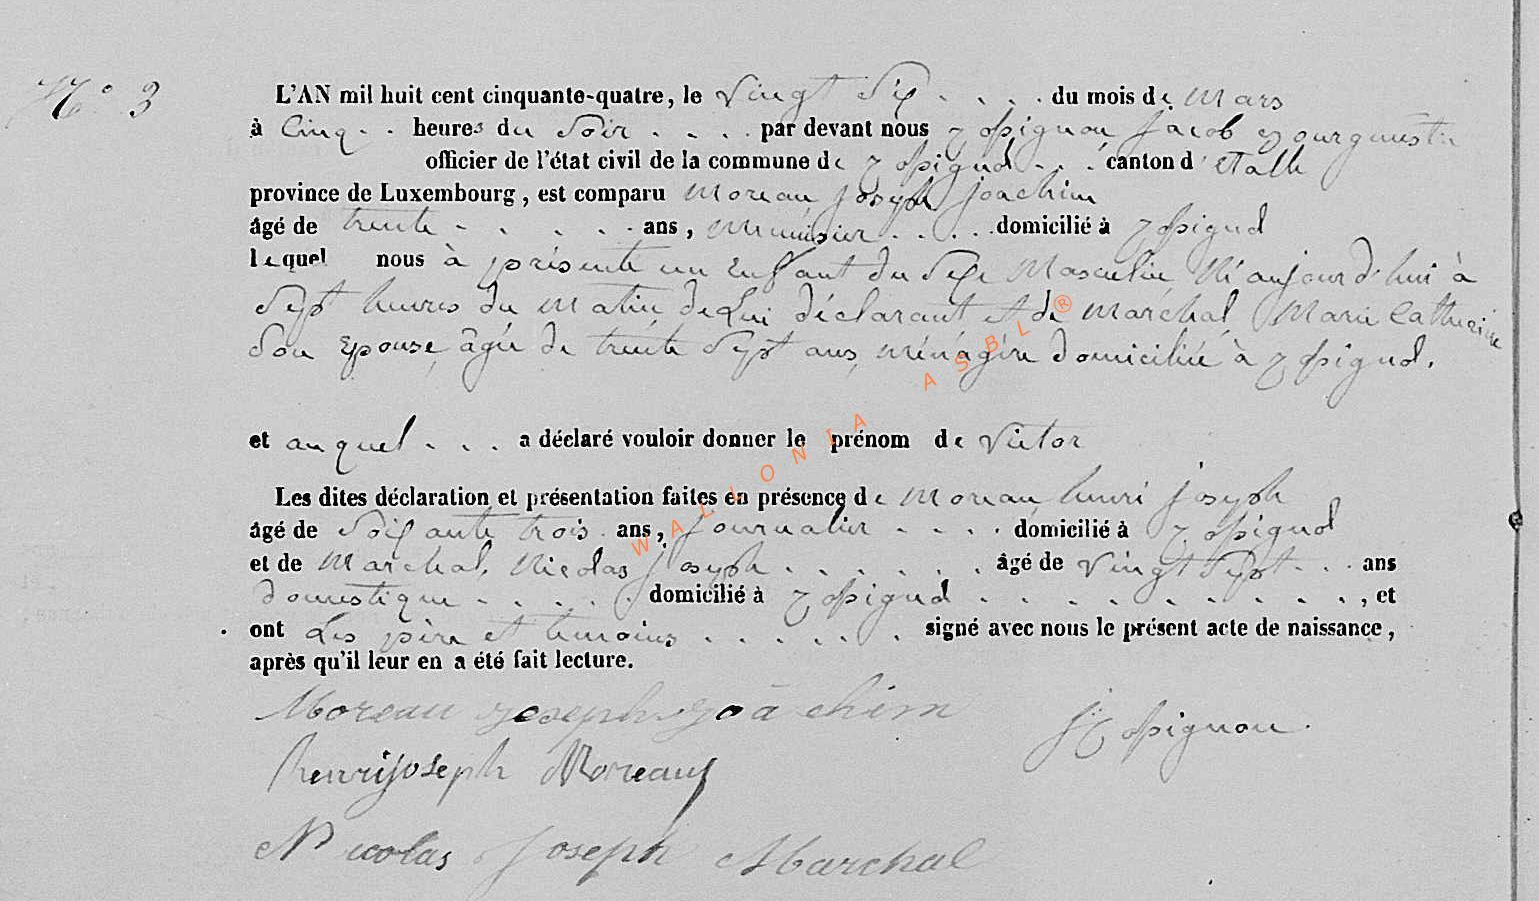 N° 3
L'AN mil huit cent cinquante-quatre, le Vingt Six du mois de Mars
à Cinq heures du Soir par devant nous Rossignon Jacob Bourguestre
officier de l'état civil de la commune de Rossignol canton d'Etalle
province de Luxembourg, est comparu Moreau Joseph Joachim
âgé de trente ans, Menuisier domicilié à Rossignol
lequel nous à présenté un Enfant du Sexe Masculin Né aujourd'hui à
Sept heures du Matin de Lui déclarant et de Maréchal Marie Catherine
Son Epouse, âgée de trente Sept ans, ménagère domiciliée à Rossignol.
et auquel a déclaré vouloir donner le prénom de Victor
Les dites déclaration et présentation faites en présence de Moreau henri Joseph
âgé de Soixante trois ans, Journalier domicilié à Rossignol
et de Marchal, Nicolas Joseph âgé de Vingt Sept ans
domestique domicilié à Rossignol, et
ont Les père et temoins signé avec nous le présent acte de naissance,
après qu'il leur en a été fait lecture.
Moreau joseph joachim
J Rossignon.
henrijoseph Moreaux
Nicolas Joseph Marchal
WALLONIA ASBL ®